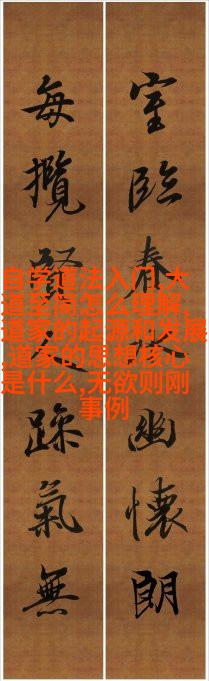 室臨春幽懷朗
每攬賢躁氣無
自学道法入门,大
道至简怎么理解,
道家的起源和发展
,道家的思想核心
是什么,无欲则刚
事例